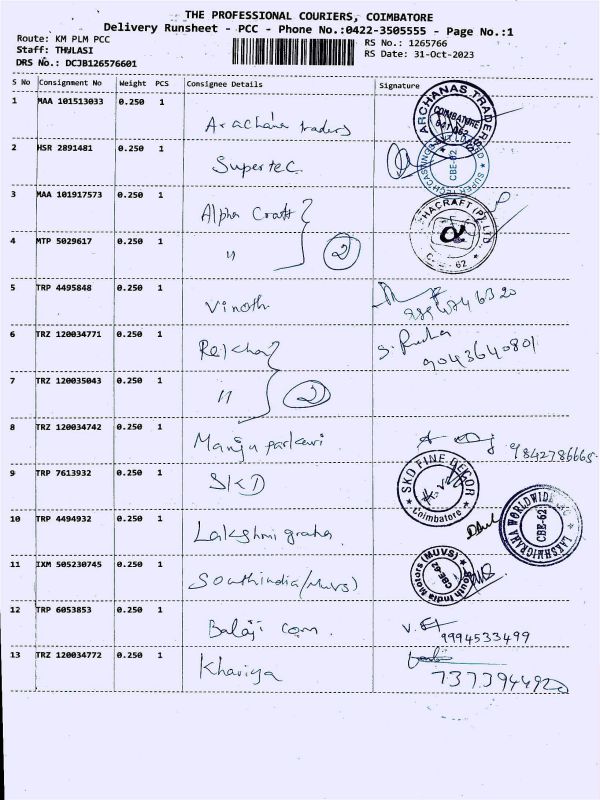 THE PROFESSIONAL COURIERS, COIMBATORE
Delivery Runsheet - PCC - Phone No.:0422-3505555 - Page No.:1
Route: KM PLM PCC
RS No.: 1265766
Staff: THULASI
RS Date: 31-Oct-2023
DRS No.: DCJB126576601
S No Consignment No Weight PCS Consignee Details Signature
1 MAA 101513033 0.250 1
Arachana traders
ARCHANAS TRADERS COIMBATORE 641 062
2 HSR 2891481 0.250 1
Supertec
SUPERTECH CASTING CBE-62
3 MAA 101917573 0.250 1
Alpha Craft
ALPHACRAFT (P) LTD.
4 MTP 5029617 0.250 1
" 2
5 TRP 4495848 0.250 1
Vinoth
6 TRZ 120034771 0.250 1
9043640801
7 TRZ 120035043 0.250 1
" 2
8 TRZ 120034742 0.250 1
Manju parkavi
9842786665
9 TRP 7613932 0.250 1
SKD
SKD FINE DECOR Coimbatore
10 TRP 4494932 0.250 1
Lakshmi graha
LAKSHMIGRAHA WORLDWIDE INC CBE-62
11 IXM 505230745 0.250 1
Southindia (Muvs)
South India Motors (MUVS) CBE-62
12 TRP 6053853 0.250 1
Balaji com
9994533499
13 TRZ 120034772 0.250 1
Khariya
7373944920